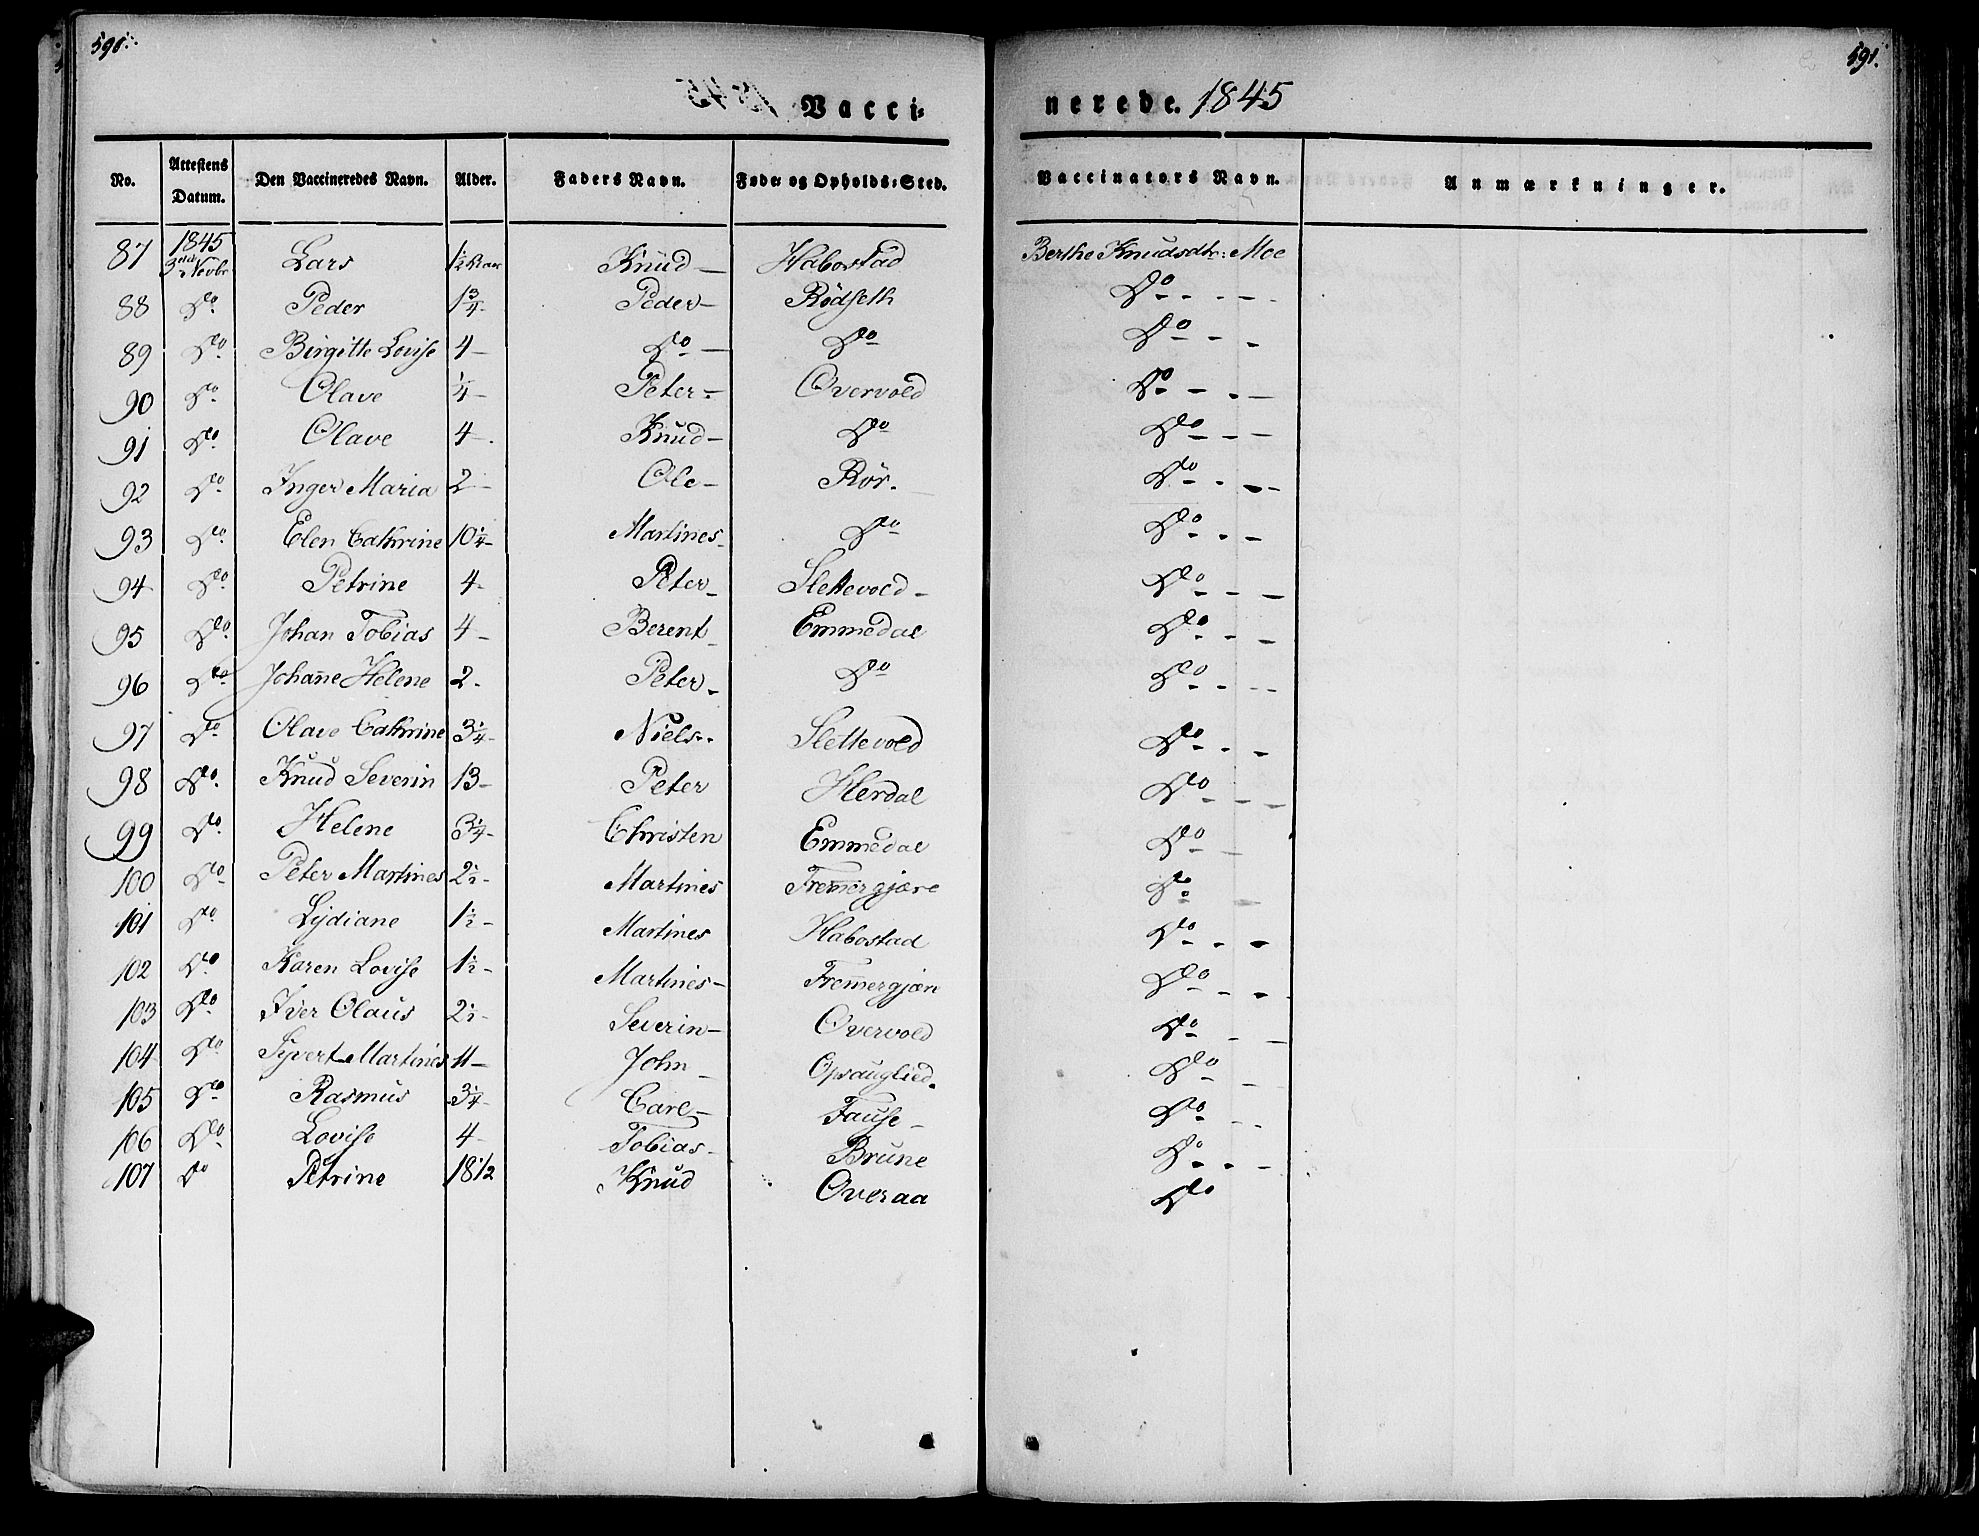 591.
591.
Vacci-
nerede. 1845
No. Attestens Datum. Den Vaccineredes Navn. Alder. Faders Navn. Føde- og Opholds-Sted. Vaccinators Navn. Anmærkninger.
87 1845 3die Novbr Lars 1½ Knud Habostad Berthe Knudsdtr: Moe
88 Do Peder 1¾ Peder Rödseth Do
89 Do Birgitte Lovise 4 Do Do Do
90 Do Olave Peter Overvold Do
91 Do Olave 4 Knud Do Do
92 Do Inger Maria 2 Ole Rör. Do
93 Do Elen Cathrine 10¼ Martines Do Do
94 Do Petrine 4 Peter Slettevold Do
95 Do Johan Tobias 4 Berent Emmedal Do
96 Do Johan̄e Helene 2 Peter Do Do
97 Do Olave Cathrine 3¼ Niels Slettevold Do
98 Do Knud Severin 13 Peter Herdal Do
99 Do Helene 3¼ Christen Emmedal Do
100 Do Peter Martines 2½ Martines Frem̄ergjære Do
101 Do Lydiane 1½ Martines Habostad Do
102 Do Karen Lovise 1½ Martines Frem̄ergjære Do
103 Do Iver Olaus 2½ Severin Overvold Do
104 Do Syvert Martines 11 John Opsauglied. Do
105 Do Rasmus 3¼ Carl Fause Do
106 Do Lovise 4 Tobias Brune Do
107 Do Petrine 18½ Knud Overaa Do